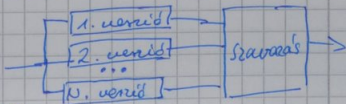 1. verzió
2. verzió
...
N. verzió
szavazás